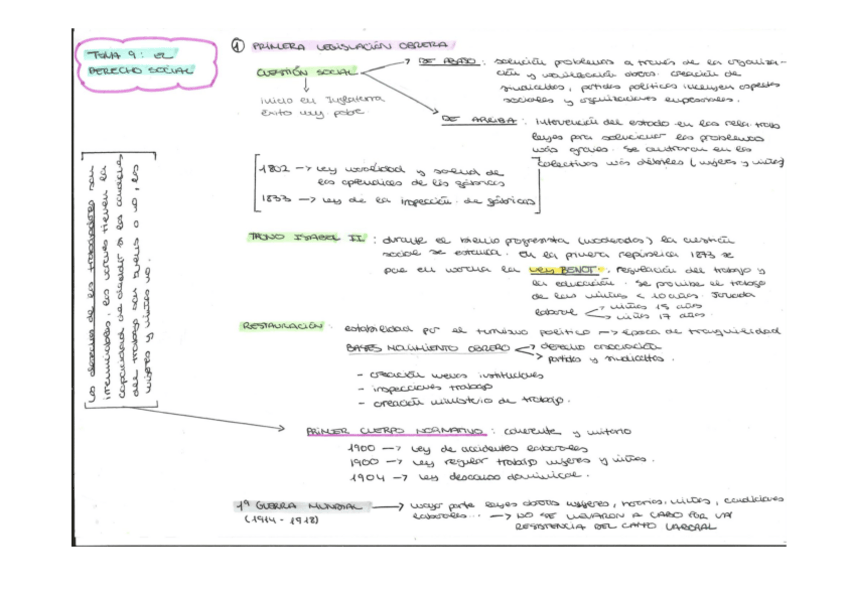 TEMA 9: EL
DERECHO SOCIAL
① PRIMERA LEGISLACIÓN OBRERA
CUESTIÓN SOCIAL
inicio en Inglaterra
éxito muy pobre
→ DE ABAJO: solución problemas a través de la organiza-
ción y movilización obrera. creación de
sindicatos, partidos políticos incluyen aspectos
sociales y organizaciones empresariales.
DE ARRIBA: intervención del estado en las rela. trabajo
leyes para solucionar los problemas
más graves. Se centraron en los
colectivos más débiles (mujeres y niños)
1802 → Ley moralidad y salud de
los aprendices de las fábricas
1833 → Ley de la inspección de fábricas
Los derechos de los trabajadores son
irrenunciables, los varones tienen la
capacidad de decidir si las condiciones
del trabajo son buenas o no, las
mujeres y niños no.
TRONO ISABEL II: durante el bienio progresista (moderados) la cuestión
social se estanca. En la primera república 1873 se
pone en marcha la Ley BENOT. regulación del trabajo y
la educación. Se prohíbe el trabajo
de los niños < 10 años. Jornada
laboral niños 15 años
niñas 17 años.
RESTAURACIÓN: estabilidad por el turnismo político → época de tranquilidad
BASES MOVIMIENTO OBRERO derecho asociación
partidos y sindicatos.
- creación nuevas instituciones
- inspecciones trabajo
- creación ministerio de trabajo.
PRIMER CUERPO NORMATIVO: coherente y unitario
1900 → Ley de accidentes laborales
1900 → Ley regular trabajo mujeres y niños.
1904 → Ley descanso dominical.
1ª GUERRA MUNDIAL → mayor parte leyes obreras mujeres, horarios, niños, condiciones
(1914 - 1918) laborales... → NO SE LLEVARON A CABO POR LA
RESISTENCIA DEL CAMPO LABORAL